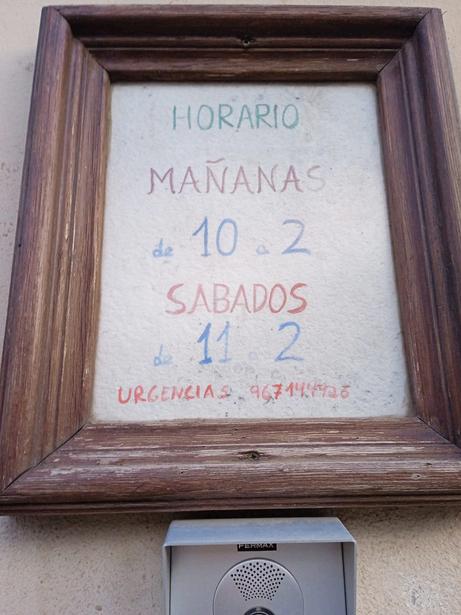 HORARIO
MAÑANAS
de 10 a 2
SABADOS
de 11 a 2
URGENCIAS
FERMAX